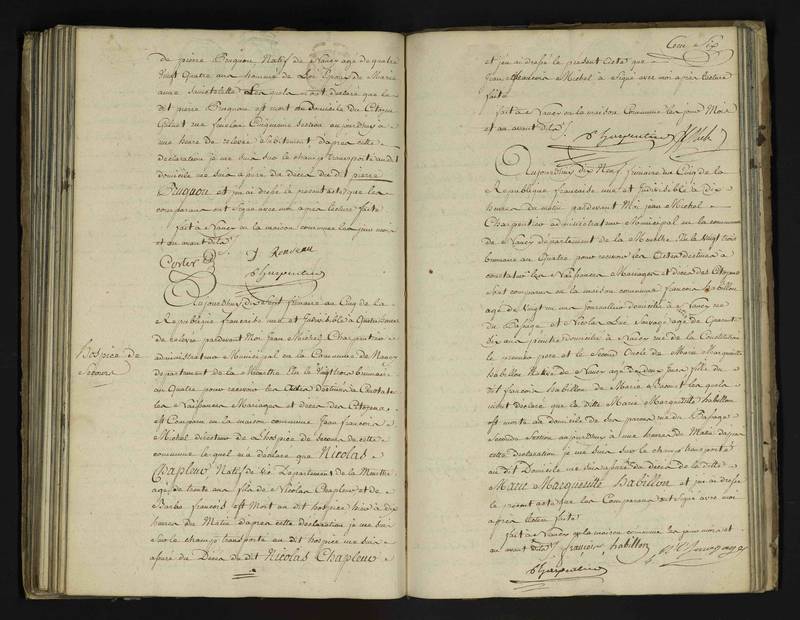 de pierre Pugnon, Natif de Nancy age de quatre
vingt Quatre ans homme de Loi Epoux de Marie
anne les quels m'ont déclaré que le
dit pierre Pugnon est mort au Domicile du Citoyen
rue Cinquieme Section aujourdhui à
une heure de relevée d'après cette
déclaration je me suis sur le champ transporté au dit
domicile me suis assuré du Deces du dit pierre
Pugnon et j'ai dressé le present acte que les
comparans ont Signé avec moi après lecture faite
fait à Nancy en la maison commune les jour mois
et an avant dits
Charpentier
Aujourdhui dix sept frimaire au Cinq de la
République française une et Indivisible à Quatre heures
de relevée pardevant Moi Jean Michel Charpentier
administrateur Municipal en la Commune de Nancy
departement de la Meurthe Elu le Vingt trois brumaire
an Quatre pour recevoir les Actes destinés à Constater
les Naissances Mariages et Deces des Citoyens
est Comparu en la maison commune Jean francois
Michel directeur de L'hospice de Secours de cette
commune le quel m'a déclaré que Nicolas
Chapleur Natif de Departement de la Meurthe
age de trente ans fils de Nicolas Chapleur et de
Barbe francois est Mort au dit hospice hier à dix
heures du Matin d'apres cette déclaration je me suis
Sur le champ transporté au dit hospice me suis
assuré du Deces du dit Nicolas Chapleur
Hospice de
Secours
Cent Six
et j'en ai dressé le present Acte que
Jean francois Michel à Signé avec moi après lecture
faite
fait à Nancy en la maison Commune les jour Mois
et an avant dits
Charpentier
Aujourdhui dix Neuf frimaire au Cinq de la
République française une et Indivisible à Dix
heures du matin pardevant Moi jean Michel
Charpentier administrateur Municipal en la commune
de Nancy departement de la Meurthe Elu le Vingt trois
brumaire an Quatre pour recevoir les Actes destinés à
constater les Naissances Mariages et deces des Citoyens
Sont comparus en la maison commune francois habillon
agé de Vingt un ans journalier domicilié à Nancy rue
du Passage et Nicolas Luc Sauvage agé de Quarante
Six ans peintre domicilié à Nancy rue de la Constitution
le premier pere et le Second Oncle de Marie Marguerite
habillon Native de Nancy agée de deux jours fille du
dit francois habillon de Marie les quels
m'ont déclaré que la ditte Marie Marguerite habillon
est morte au domicile de Son pere rue du Passage
Seconde Section aujourdhui à une heure du Matin d'après
cette déclaration je me suis sur le champ transporté
au dit Domicile me suis assuré du Deces de la ditte
Marie Marguerite habillon et j'ai dressé
le present acte que les Comparans ont Signé avec moi
après lecture faite
fait à Nancy en la maison commune les jour mois et
an avant dits francois habillon N L Sauvage
Charpentier